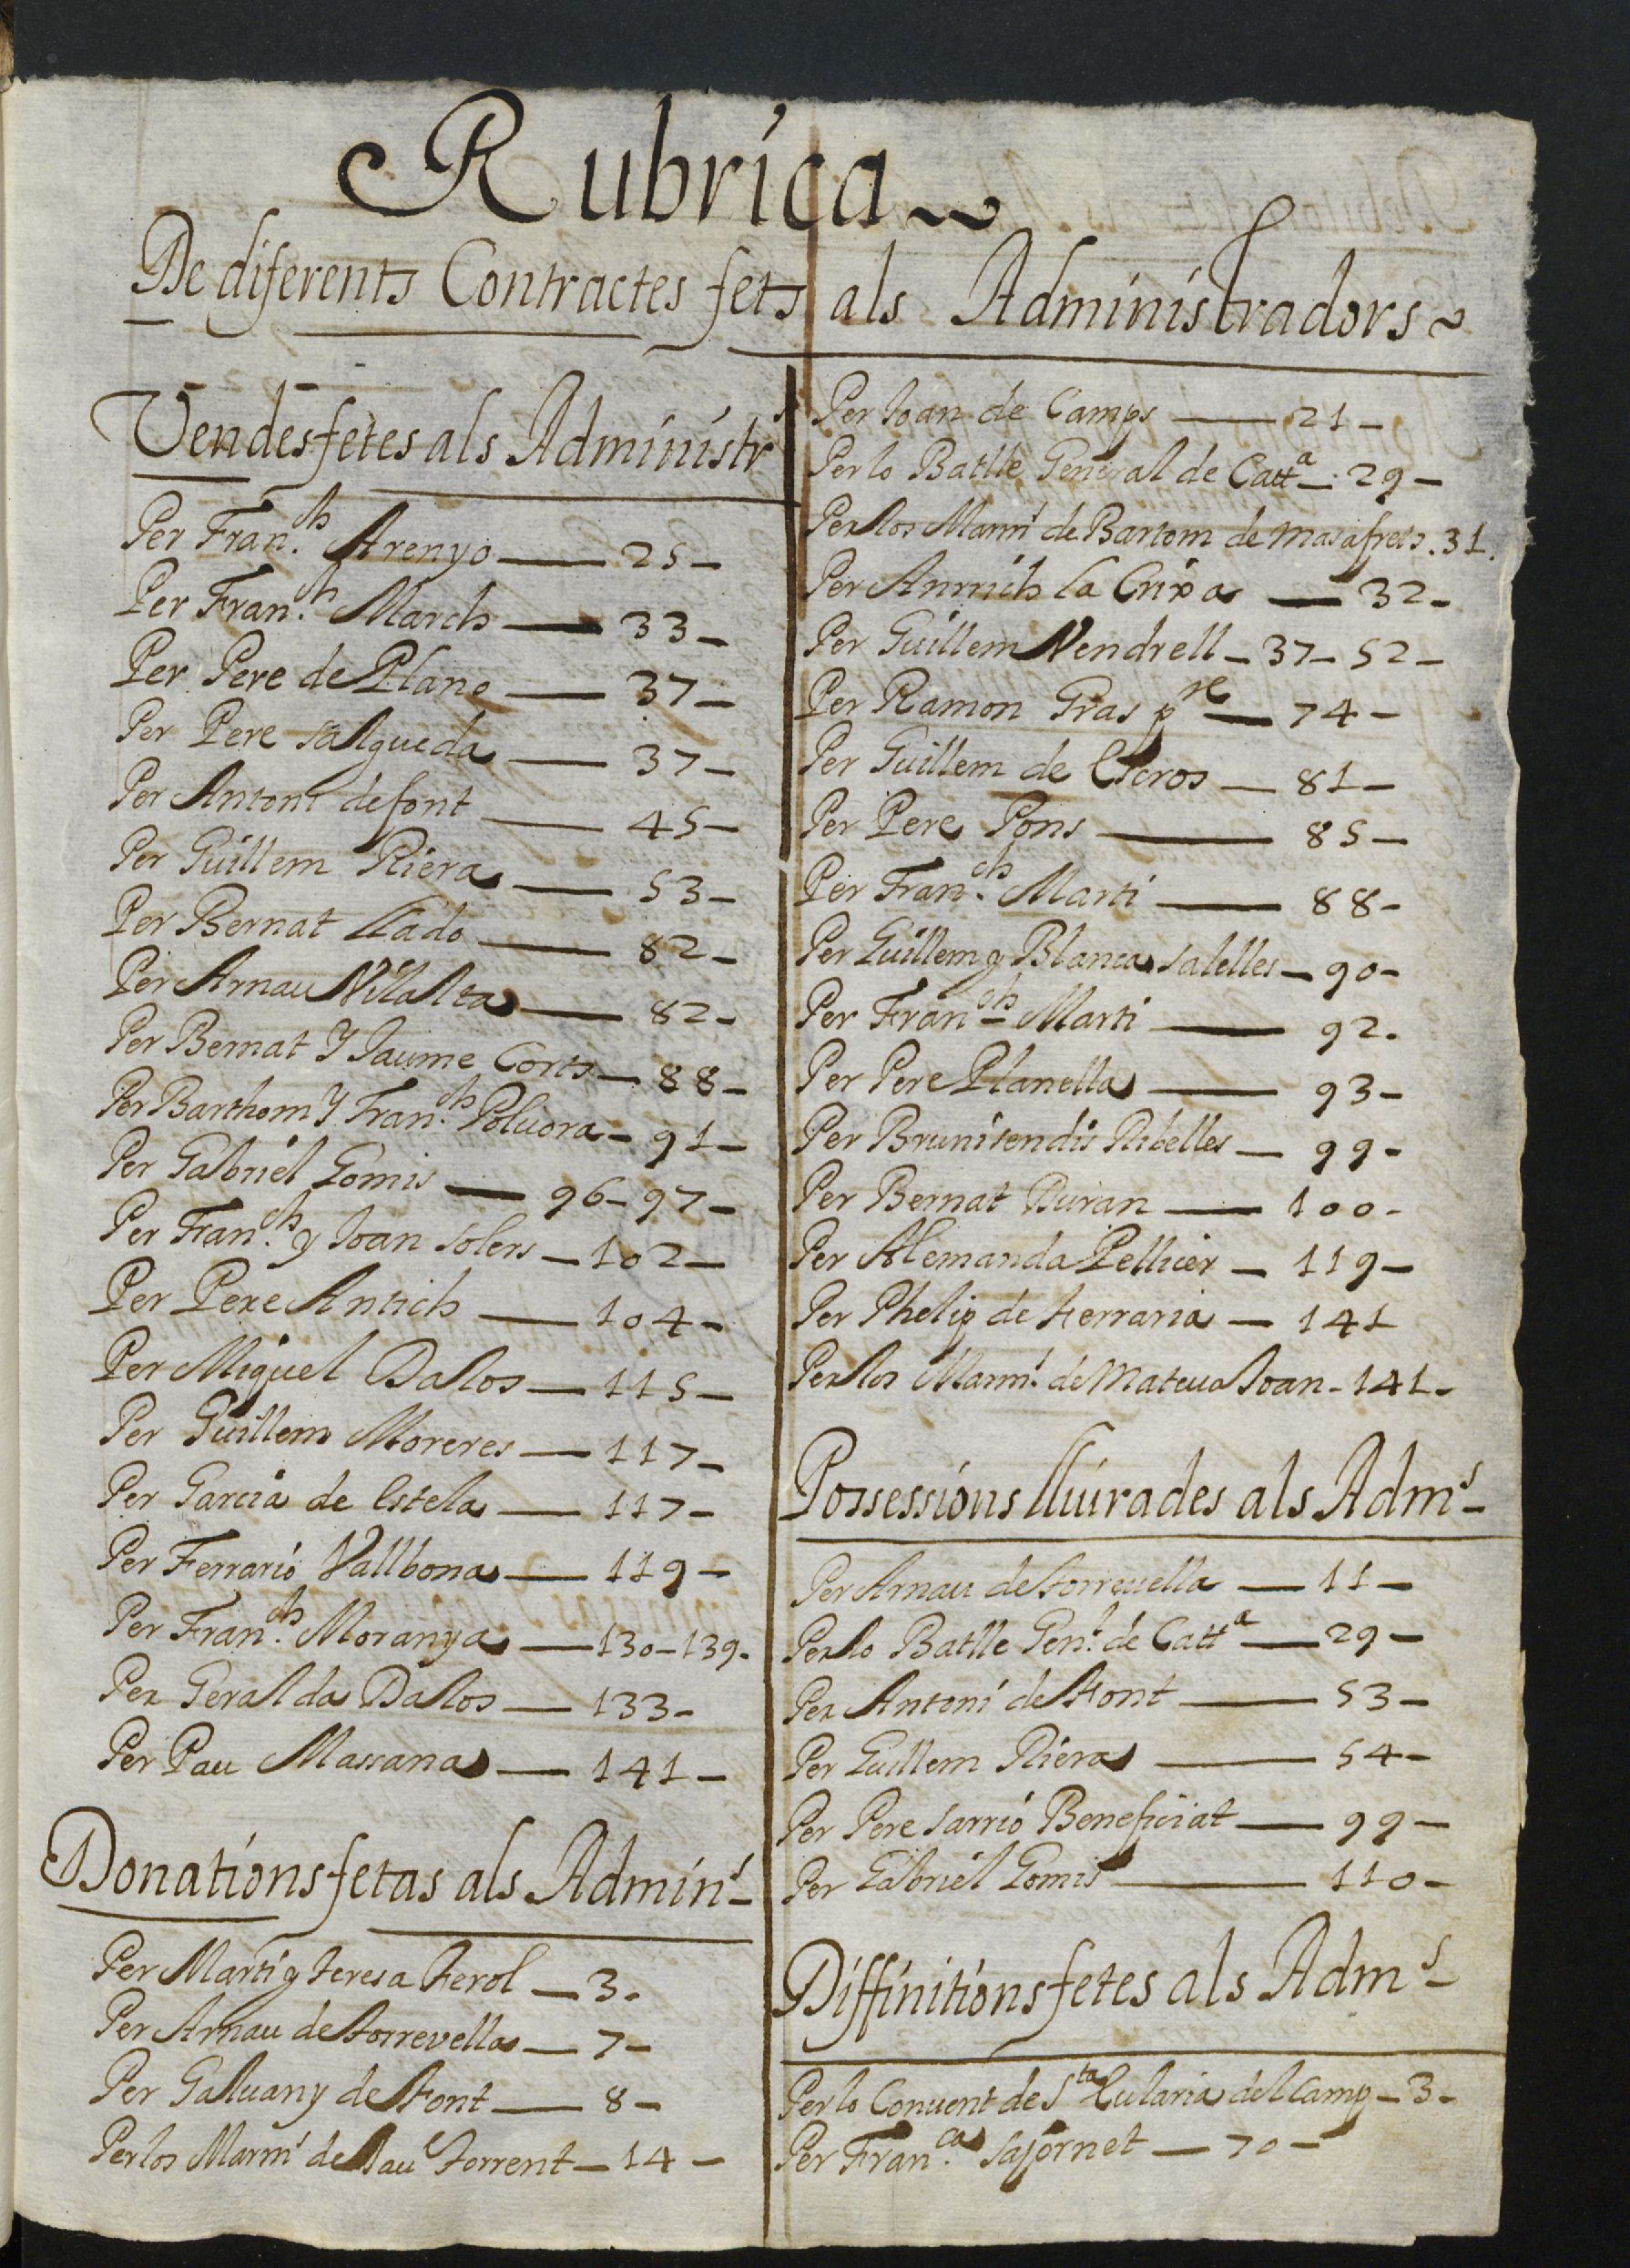 Rubrica
De diferents Contractes fets als Administradors
Vendes fetes als Administrs
Per Fran.ch Arenyo — 25 –
Per Fran.ch March — 33 –
Per Pere de Plano — 37 –
Per Pere salgueda — 37 –
Per Antoni de font — 45 –
Per Guillem Riera — 53 –
Per Bernat Llado — 82 –
Per Arnau Vilalta — 82 –
Per Bernat Y Jaume Corts – 88 –
Per Barthom Y Fran.ch Poluora – 91 –
Per Gabriel Gomis — 96 – 97 –
Per Fran.ch y Joan solers – 102 –
Per Pere Antich — 104 –
Per Miquel Dalos — 115 –
Per Guillem Moreres — 117 –
Per Garcia de Estela — 117 –
Per Ferrario Vallbona — 119 –
Per Fran.ch Moranya — 130 – 139 .
Per Geralda Dalos — 133 –
Per Pau Massana — 141 –
Donations fetas als Admins –
Per Marti y teresa ferol – 3 .
Per Arnau de torrevella – 7 –
Per Galuany de Font — 8 –
Per los Marms de torrent – 14 –
Per Joan de Camps — 21 –
Per lo Batlle General de Catta – 29 –
Per los Marms de Bartom de masafrets . 31 .
Per Anrrich la — 32 –
Per Guillem Vendrell – 37 – 52 –
Per Ramon Gras pre – 74 –
Per Guillem de – 81 –
Per Pere Pons — 85 –
Per Fran.ch Marti — 88 –
Per Guillem y Blanca salelles – 90 –
Per Franch Marti — 92 .
Per Pere Planella — 93 –
Per Brunisendis Ribelles – 99 –
Per Bernat Duran — 100 –
Per Alemanda Pellicer – 119 –
Per Phelip de Ferraria – 141
Per los Marms de Mateua Joan – 141 –
Possessions lliurades als Adms –
Per Arnau de torreuella — 11 –
Per lo Batlle Genl de Catta — 29 –
Per Antoni de Font — 53 –
Per Guillem Riera — 54 –
Per Pere sarrió Beneficiat — 99 –
Per Gabriel Gomis — 110 –
Diffinitions fetes als Adms –
Per lo Conuent de Sta Eularia del Camp – 3 –
Per Fran.ca safornet — 70 –